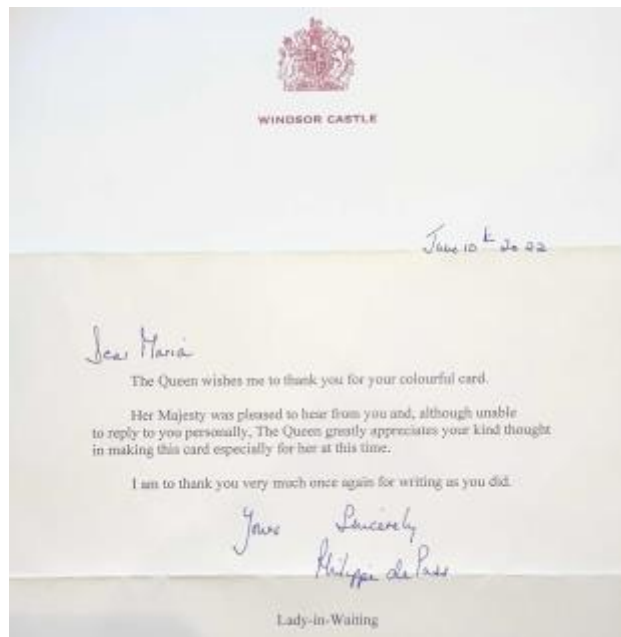 WINDSOR CASTLE
June 10th 2022
Dear Maria
The Queen wishes me to thank you for your colourful card.
Her Majesty was pleased to hear from you and, although unable
to reply to you personally, The Queen greatly appreciates your kind thought
in making this card especially for her at this time.
I am to thank you very much once again for writing as you did.
Yours Sincerely
Philippa de Pass
Lady-in-Waiting